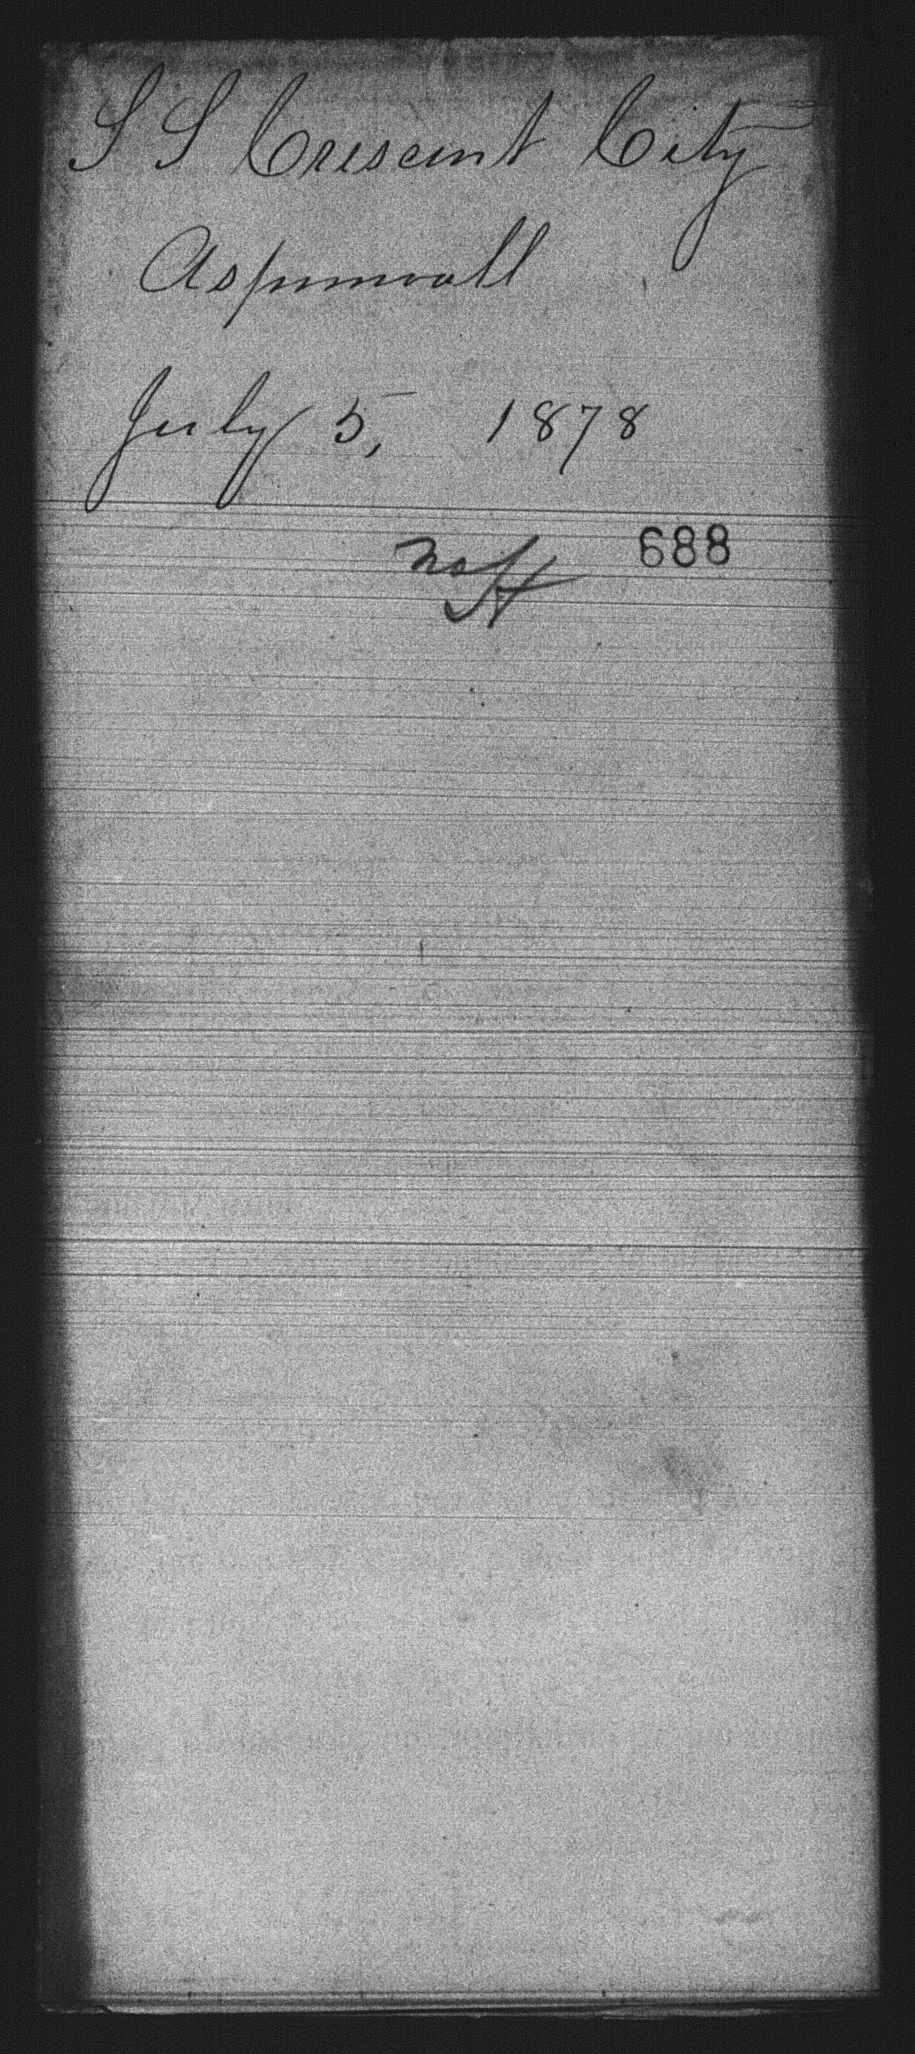 S S Crescent City
Aspinwall
July 5, 1878
688